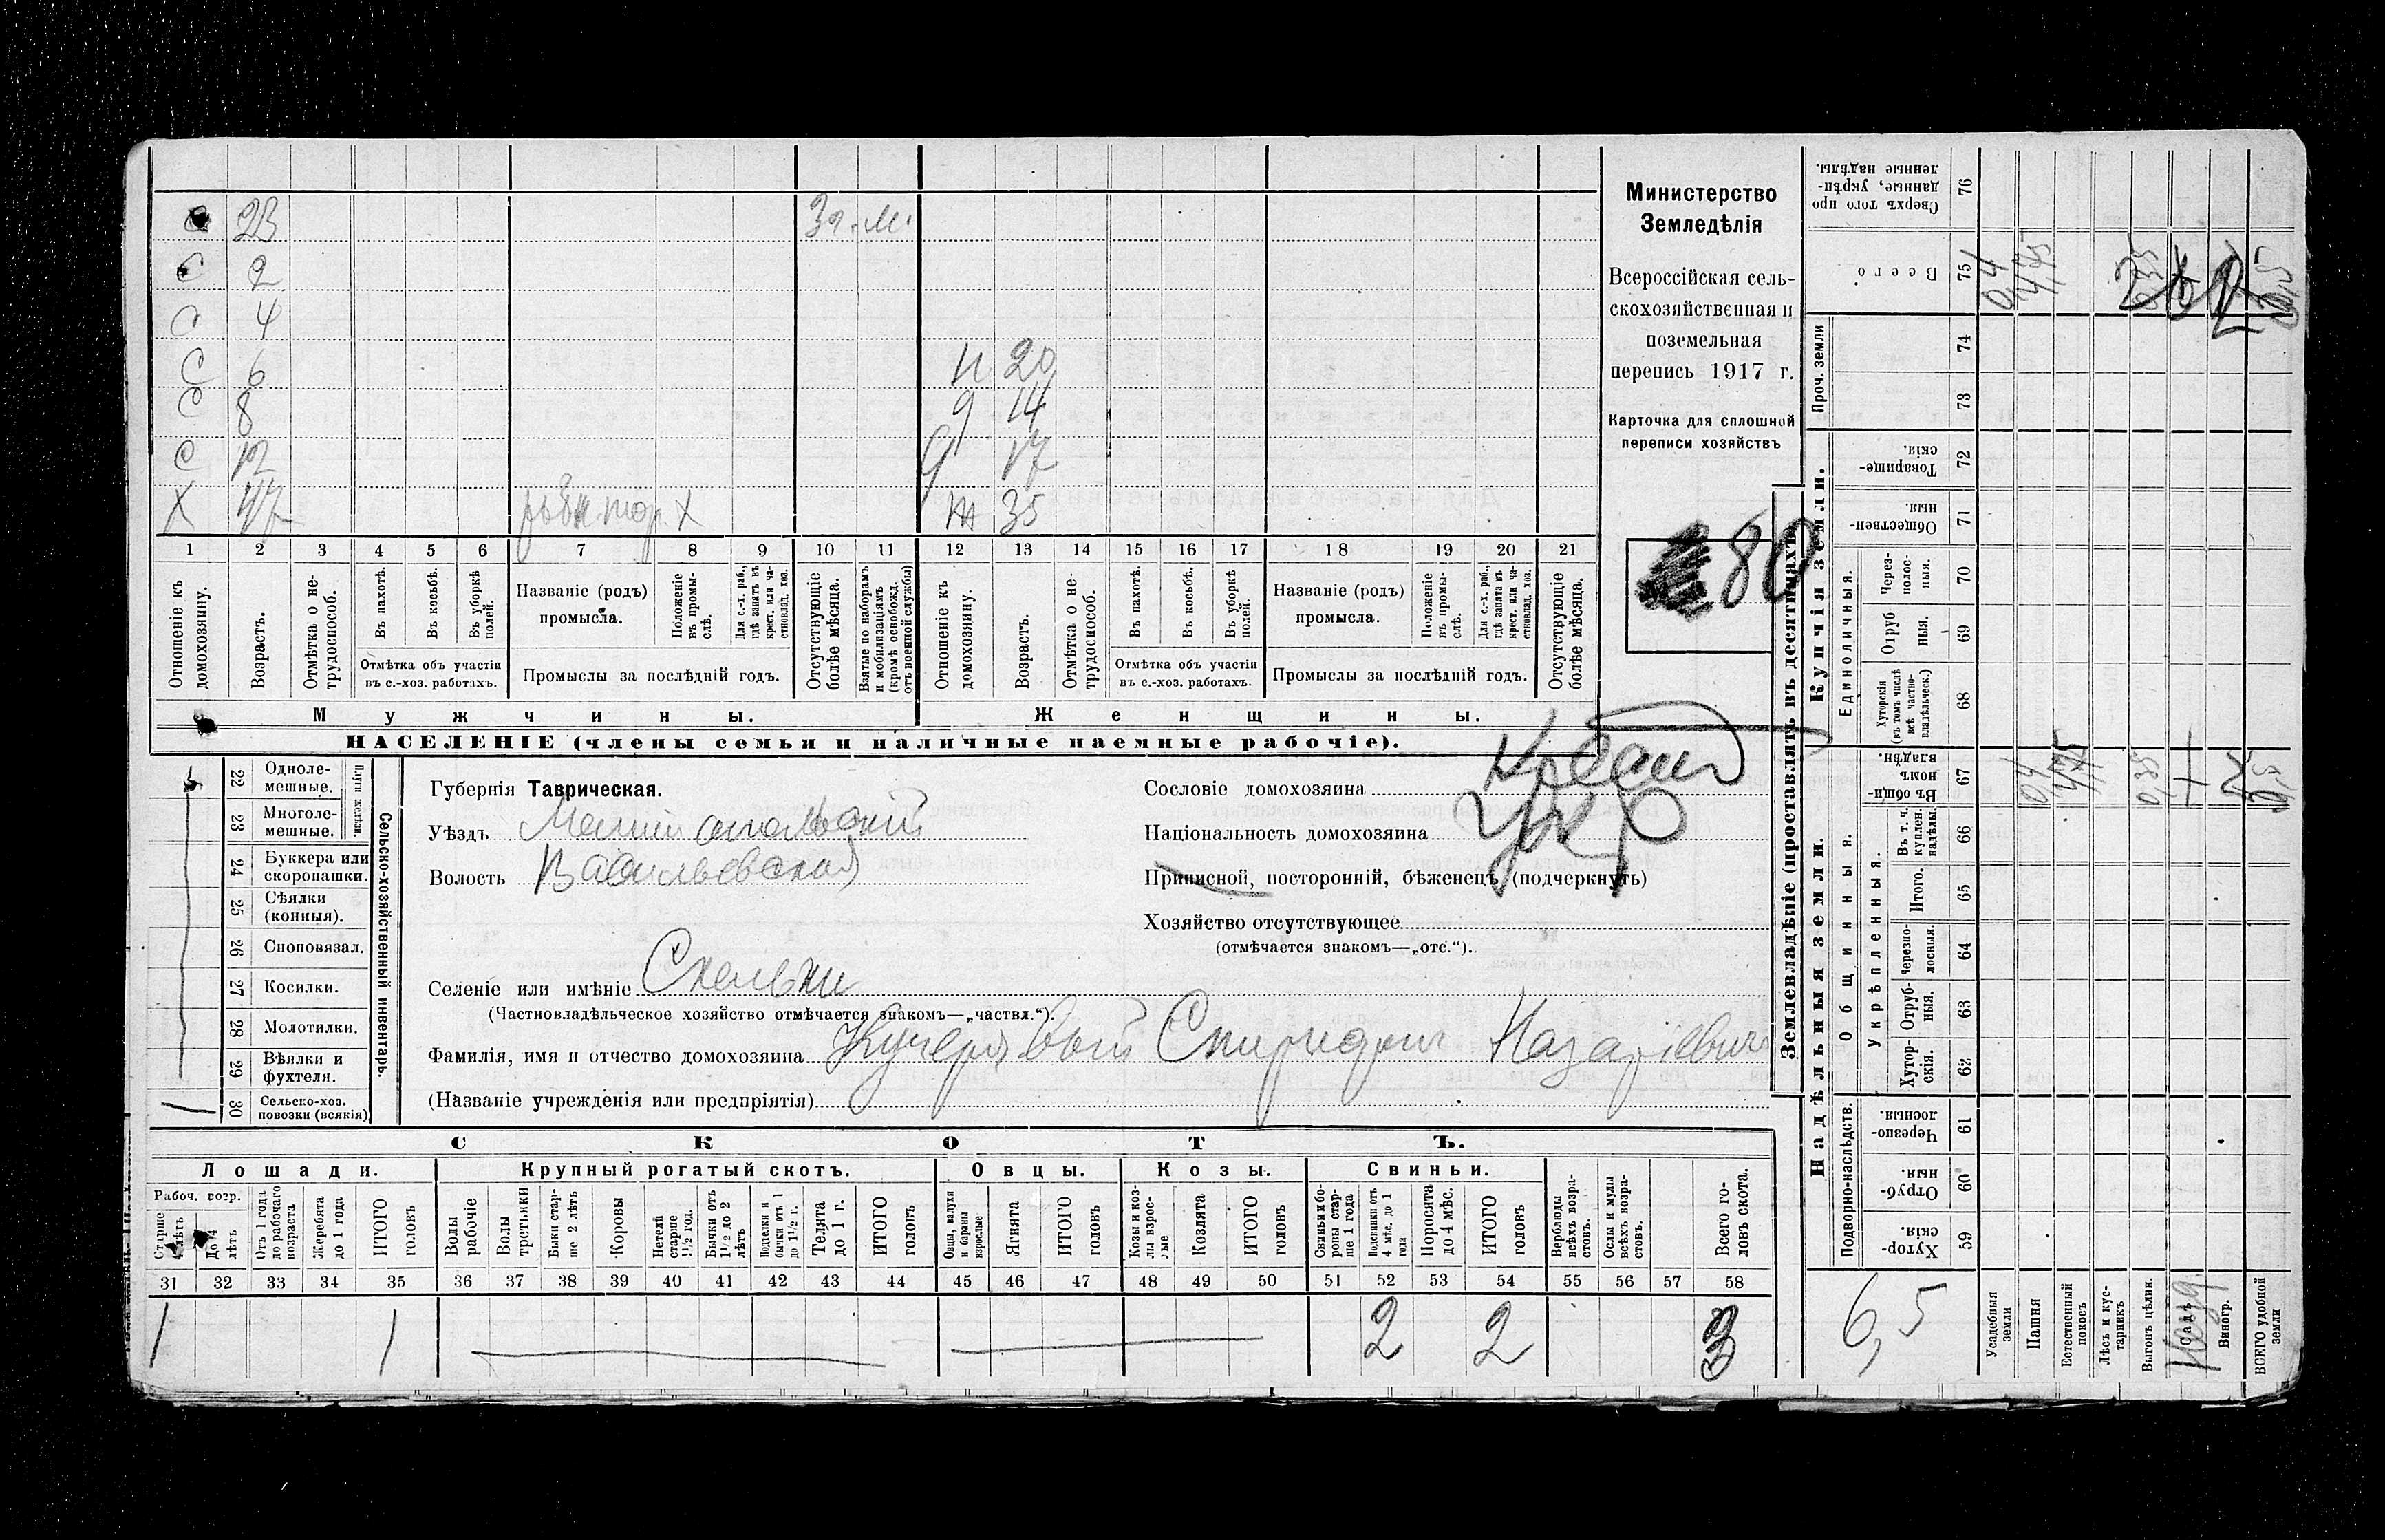 С 23 Зг. м.
С 2
С 4
С 6 Н 20
С 8 Д 14
С 12 Д 17
Х 47 Х Ж 35
1 2 3 4 5 6 7 8 9 10 11 12 13 14 15 16 17 18 19 20 21
Отношеніе къ домохозяину.
Возрастъ.
Отмѣтка о нетрудоспособ.
Въ пахотѣ.
Въ косьбѣ.
Въ уборкѣ полей.
Отмѣтка объ участіи
въ с.-хоз. работахъ.
Названіе (родъ)
промысла.
Положеніе въ промыслѣ.
Для с.-х. раб., гдѣ занятъ въ крест. или частновлад. хоз.
Промыслы за послѣдній годъ.
Отсутствующіе болѣе мѣсяца.
Взятые по наборамъ и мобилизаціямъ (кромѣ освобожд. отъ военной службы)
Отношеніе къ домохозяину.
Возрастъ.
Отмѣтка о нетрудоспособ.
Въ пахотѣ.
Въ косьбѣ.
Въ уборкѣ полей.
Отмѣтка объ участіи
въ с.-хоз. работахъ.
Названіе (родъ)
промысла.
Положеніе въ промыслѣ.
Для с.-х. раб., гдѣ занята въ крест. или частновлад. хоз.
Промыслы за послѣдній годъ.
Отсутствующіе болѣе мѣсяца.
Мужчины.
Женщины.
НАСЕЛЕНІЕ (члены семьи и наличные наемные рабочіе).
Министерство
Земледѣлія
Всероссійская сель-
скохозяйственная и
поземельная
перепись 1917 г.
Карточка для сплошной
переписи хозяйствъ
80
22 Одноле-
мешные.
23 Многоле-
мешные.
Плуги желѣзн.
24 Буккера или
скоропашки.
25 Сѣялки
(конныя).
26 Сноповязал.
27 Косилки.
28 Молотилки.
29 Вѣялки и
фухтеля.
30 Сельско-хоз.
повозки (всякія)
Сельско-хозяйственный инвентарь.
Губернія Таврическая.
Уѣздъ Мелитопольскій
Волость Васильевская
Селеніе или имѣніе Скельки
(Частновладѣльческое хозяйство отмѣчается знакомъ—„частвл.“).
Фамилія, имя и отчество домохозяина Кучерявый Спиридон Назарiевич
(Названіе учрежденія или предпріятія)
Сословіе домохозяина Крест
Національность домохозяина укр
Приписной, посторонній, бѣженецъ (подчеркнуть)
Хозяйство отсутствующее
(отмѣчается знакомъ—„отс.“).
СКОТЪ.
Лошади. Крупный рогатый скотъ. Овцы. Козы. Свиньи.
Рабоч. возр.
Старше 4 лѣтъ
До 4 лѣтъ
Отъ 1 года до рабочаго возраста
Жеребята до 1 года
ИТОГО головъ
Волы рабочіе
Волы третьяки
Быки старше 2 лѣтъ
Коровы
Нетели старше 1½ год.
Бычки отъ 1½ до 2 лѣтъ
Подтелки и бычки отъ 1 до 1½ г.
Телята до 1 г.
ИТОГО головъ
Овцы, валухи и бараны взрослые
Ягнята
ИТОГО головъ
Козы и козлы взрослые
Козлята
ИТОГО головъ
Свиньи боровы старше 1 года
Подсвинки отъ 4 мѣс. до 1 года
Поросята до 4 мѣс.
ИТОГО головъ
Верблюды всѣхъ возрастовъ.
Ослы и мулы всѣхъ возрастовъ.
Всего головъ скота.
31 32 33 34 35 36 37 38 39 40 41 42 43 44 45 46 47 48 49 50 51 52 53 54 55 56 57 58
1 1 2 2 3
Землевладѣніе (проставлять въ десятинахъ)
Купчія земли.
Надѣльныя земли.
Сверхъ того проданные, укрѣпленные надѣлы. 76
Всего 75 0,4 4,75
Проч. земли 74
73
Товарищескія. 72
Общественныя. 71
Единоличныя.
Черезполосныя. 70
Отрубныя. 69
Хуторскія (въ томъ числѣ всѣ частновладѣльческ.) 68
Общинныя.
Въ общиномъ владѣн. 67 0,4 4,75 0,35
Въ т. ч. куплен. надѣлы. 66
Укрѣпленныя.
Итого. 65
Черезполосныя. 64
Отрубныя. 63
Хуторскія. 62
Подворно-наслѣдств.
Черезполосныя. 61
Отрубныя. 60
Хуторскія. 59
6,5
Усадебныя земли
Пашня
Естественный покосъ
Лѣсъ и кустарникъ
Выгонъ цѣлин.
Садъ
Виногр.
ВСЕГО удобной земли